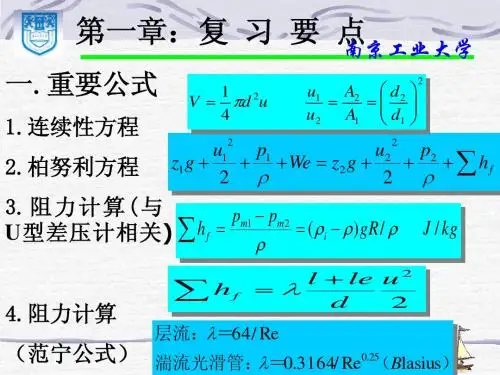 第一章：复 习 要 点
南京工业大学
一.重要公式
V = \frac{1}{4} πd²u  \frac{u_1}{u_2} = \frac{A_2}{A_1} = \left(\frac{d_2}{d_1}\right)^2
1.连续性方程
2.柏努利方程
z_1 g + \frac{u_1^2}{2} + \frac{p_1}{ρ} + We = z_2 g + \frac{u_2^2}{2} + \frac{p_2}{ρ} + ∑h_f
3.阻力计算(与
U型差压计相关)
∑h_f = \frac{p_{m1} - p_{m2}}{ρ} = (ρ_i - ρ)gR/ρ  J/kg
∑h_f = λ \frac{l + le}{d} \frac{u^2}{2}
4.阻力计算
（范宁公式）
层流：λ=64/Re
湍流光滑管：λ=0.3164/Re^{0.25}（Blasius）